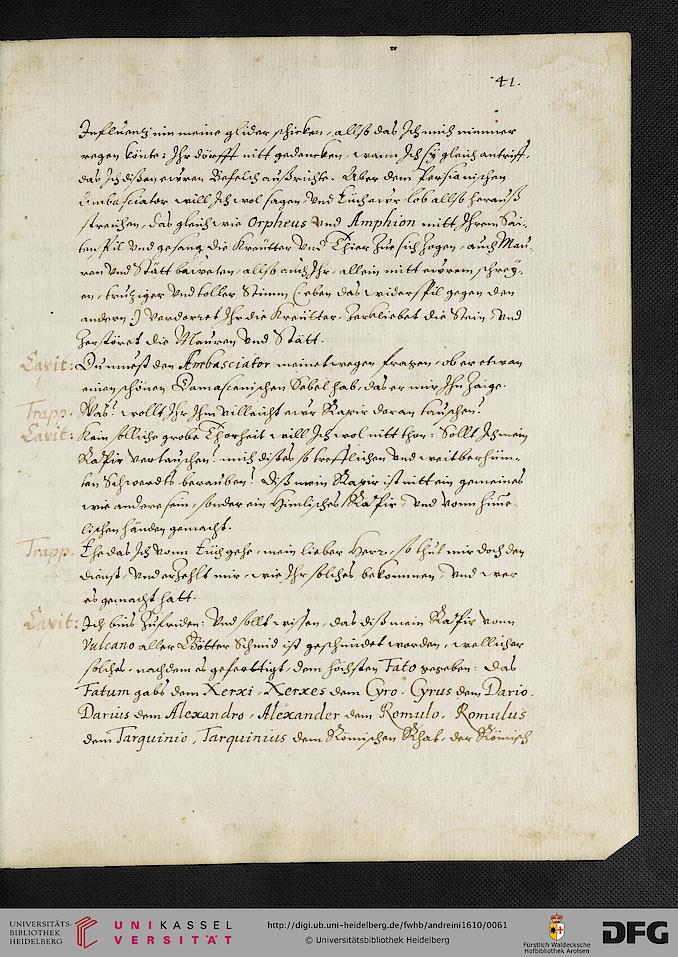 41.
Influentz inn meine glider schicken, allso das Ich mich nimmer
regen könte: Ihr dörfft nitt gedencken, wann Ich sy gleich antriff,
das Ich dißen ewren Befelch außrichte. Aber dem Persianischen
Ambasciator will Ich wol sagen, Vnd Euch ewr lob allso herauß
streichen, das gleich wie Orpheus Vnd Amphion mitt Ihrem Sai-
tenspil Vnd gesang die Kreütter Vnd Thier Zue sich Zogen, auch Mau-
ren Vnd Stätt baweten, allso auch Ihr, allein mitt ewrem schrey-
en, trutziger Vnd toller Stimm (: eben das widerspil gegen den
andern :) Verdorret Ihr die Kreütter, Zerkliebet die Stein, Vnd
Zerstöret die Mauren Vnd Stätt.
Capit: Du must den Ambasciator meinetwegen fragen, ob er etwan
einen schönen Damascenischen Sebel hab, das er mir Ihn Zaige.
Trapp. Was? wollt Ihr Ihm villeicht ewr Rapir daran tauschen?
Capit: Kein solliche grobe Thorheit will Ich wol nitt thon: Sollt Ich mein
Rapir Vertauschen? mich dißes so trefflichen Vnd weitberhüm-
ten Schwerdts berauben? Diß mein Rapir ist nitt ein gemeines
wie andere sein, sonder ein Himlisches Rapir, Vnd vonn himme-
lischen händen gemacht.
Trapp. Ehe das Ich vonn Euch gehe, mein lieber Herr, so thut mir doch den
dienst, Vnd erzehlt mir, wie Ihr solches bekommen, Vnd wer
es gemacht hatt.
Capit: Ich bins Zufriden: Vnd sollt wissen, das diß mein Rapir vonn
Vulcano aller Götter Schmid ist geschmidet worden, wellicher
solches, nachdem es gefertigt, dem höchsten Fato gegeben: das
Fatum gabs dem Xerxi, Xerxes dem Cyro, Cyrus dem Dario,
Darius dem Alexandro, Alexander dem Romulo, Romulus
dem Tarquinio, Tarquinius dem Römischen Rhat, der Römisch
UNIVERSITÄTS-
BIBLIOTHEK
HEIDELBERG
UNIKASSEL
VERSITÄT
http://digi.ub.uni-heidelberg.de/fwhb/andreini1610/0061
© Universitätsbibliothek Heidelberg
Fürstlich Waldecksche
Hofbibliothek Arolsen
DFG